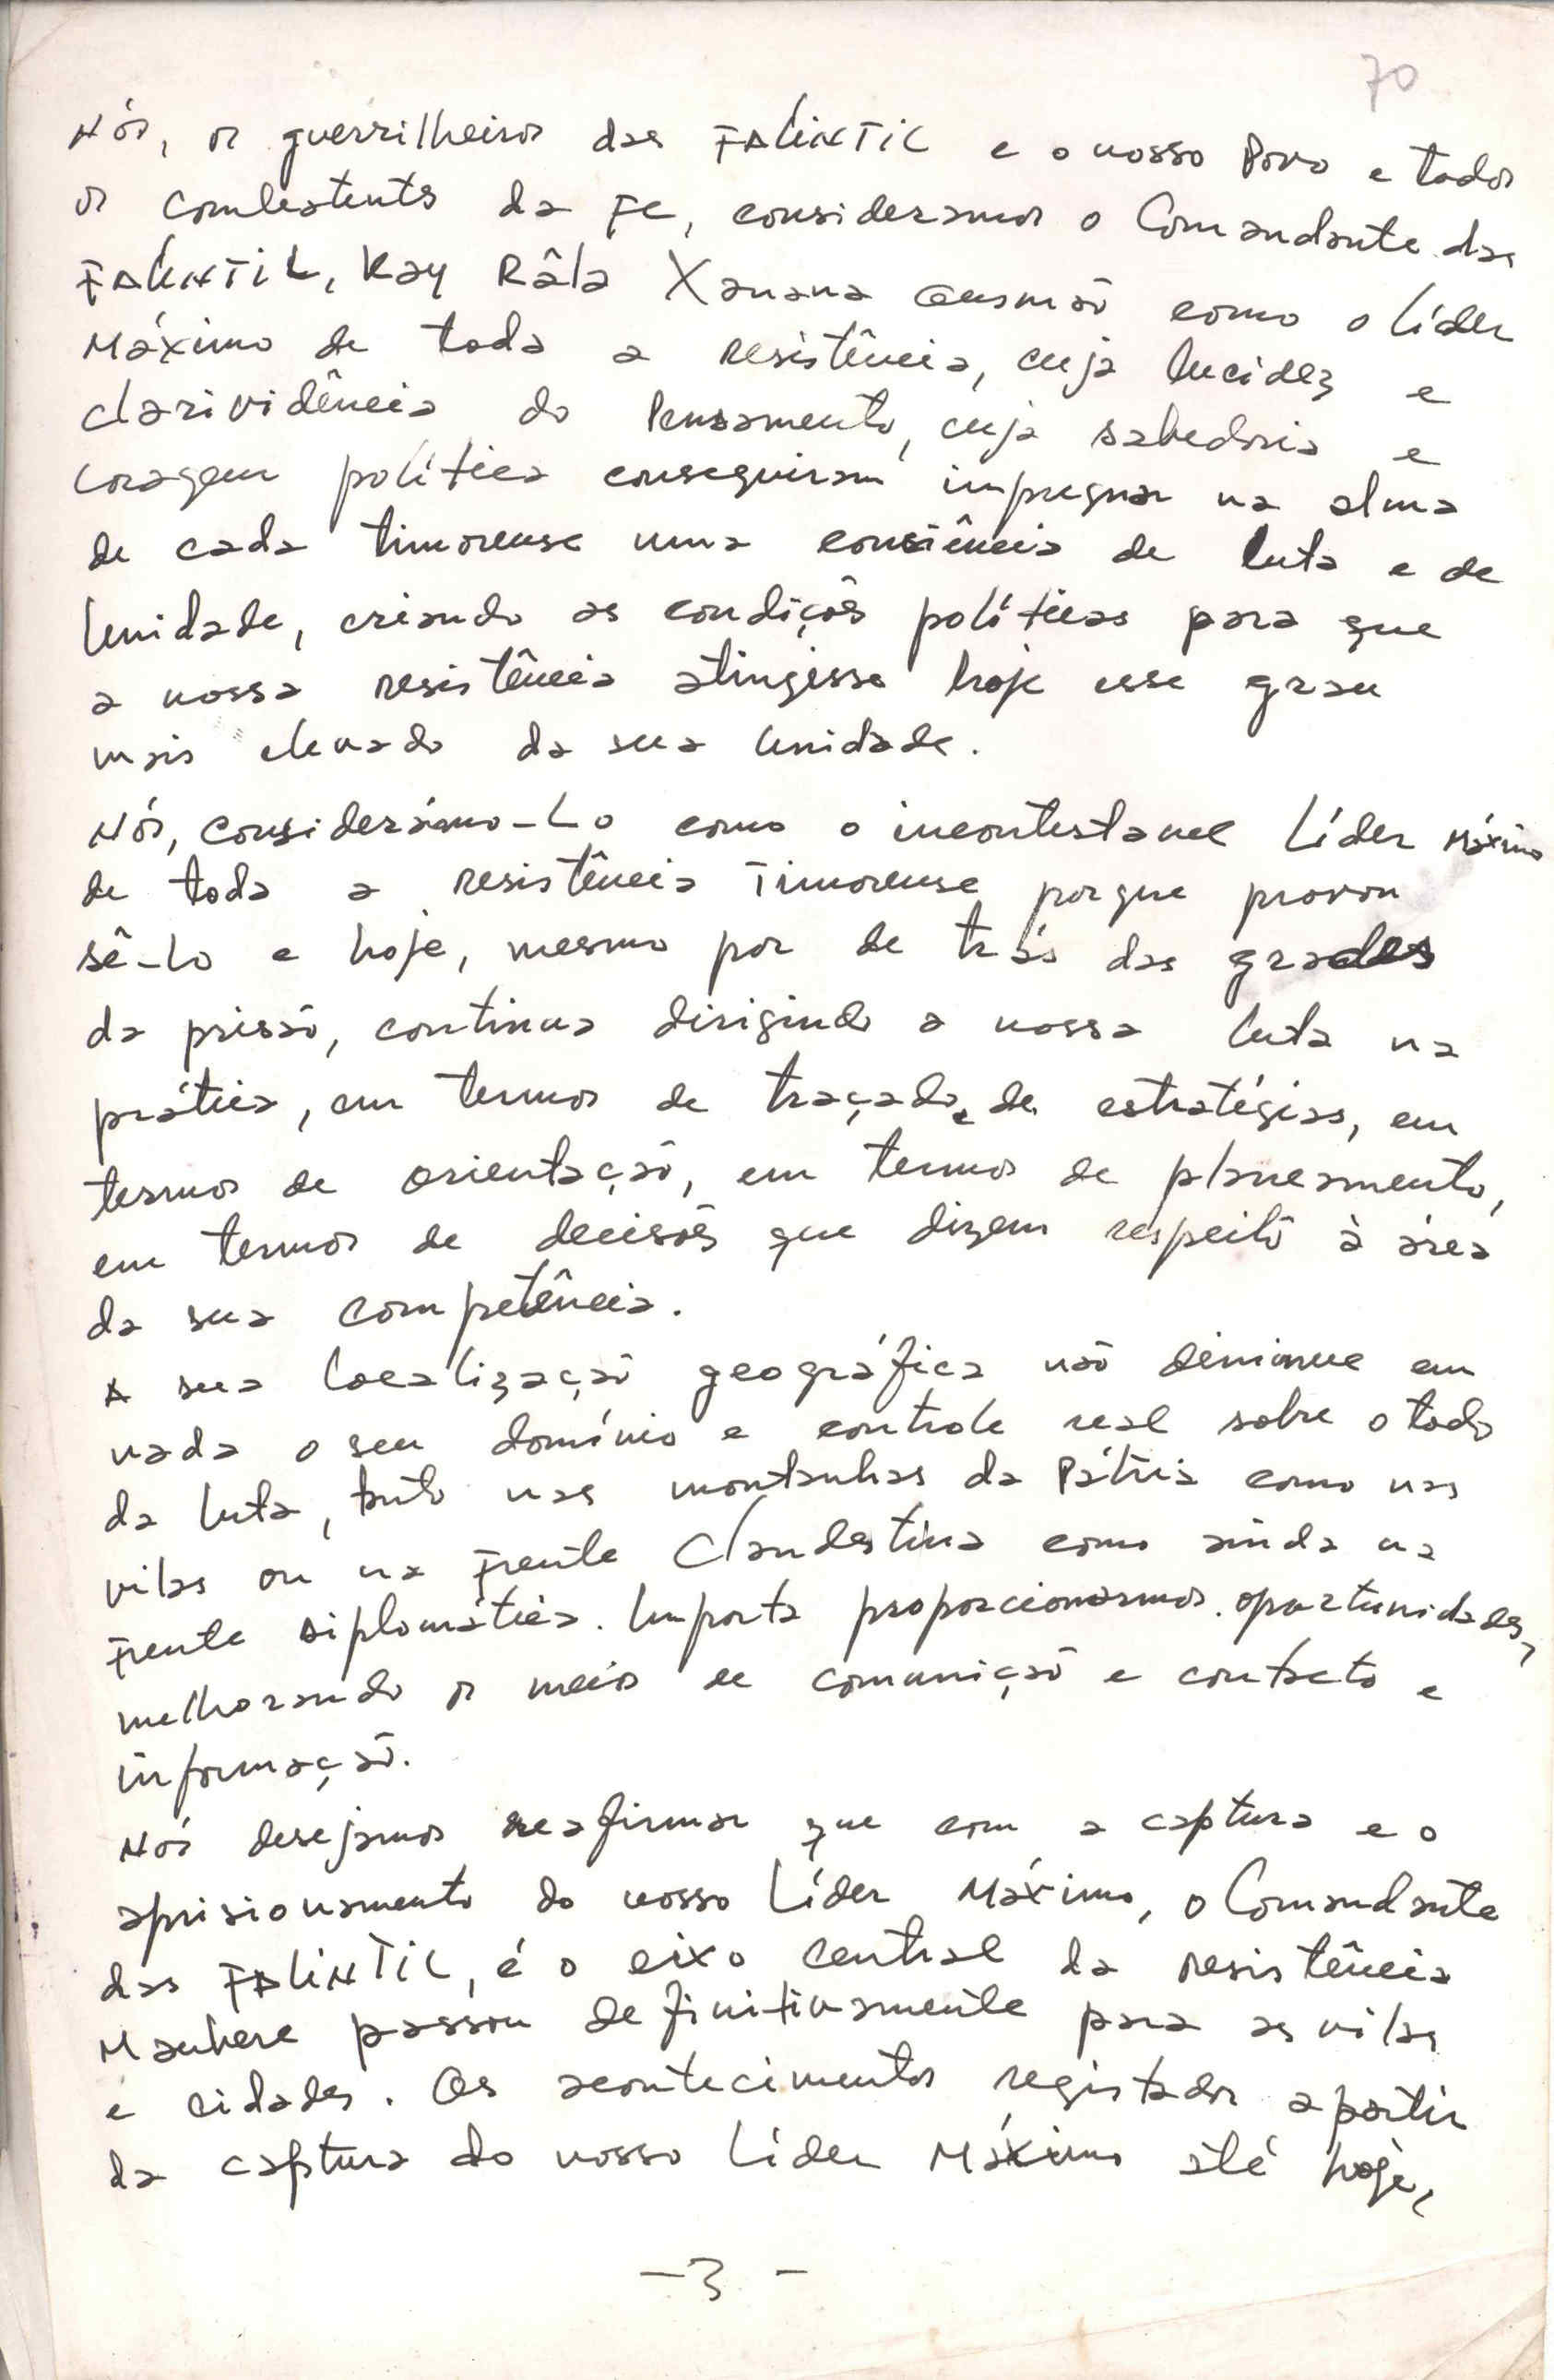 70
Nós, os guerrilheiros das FALINTIL e o nosso Povo e todos
os combatentes da FC, consideramos o Comandante das
FALINTIL, Kay Râla Xanana Gusmão como o líder
Máximo de toda a resistência, cuja lucidez e
clarividência do Pensamento, cuja sabedoria e
coragem política conseguiram impregnar na alma
de cada timorense uma consiência de luta e de
Unidade, criando as condições políticas para que
a nossa resistência atingisse hoje esse grau
mais elevado da sua Unidade.
Nós, considerámo-Lo como o incontestavel Líder Máximo
de toda a resistência Timorense porque provou
sê-lo e hoje, mesmo por de trás das grades
da prisão, continua dirigindo a nossa luta na
prática, em termos de traçado de estratégias, em
termos de orientação, em termos de planeamento,
em termos de decisões que dizem respeito à área
da sua competência.
A sua localização geográfica não diminue em
nada o seu domínio e controle real sobre o todo
da luta, tanto nas montanhas da Pátria como nas
vilas ou na Frente Clandestina como ainda na
Frente Diplomática. Importa proporcionarmos oportunidades,
melhorando os meios de comunição e contacto e
informação.
Nós desejamos reafirmar que com a captura e o
aprisionamento do nosso Líder Máximo, o Comandante
das FALINTIL, é o eixo central da resistência
Maubere passou definitivamente para as vilas
e cidades. Os acontecimentos registados a partir
da captura do nosso Líder Máximo até hoje,
-3-